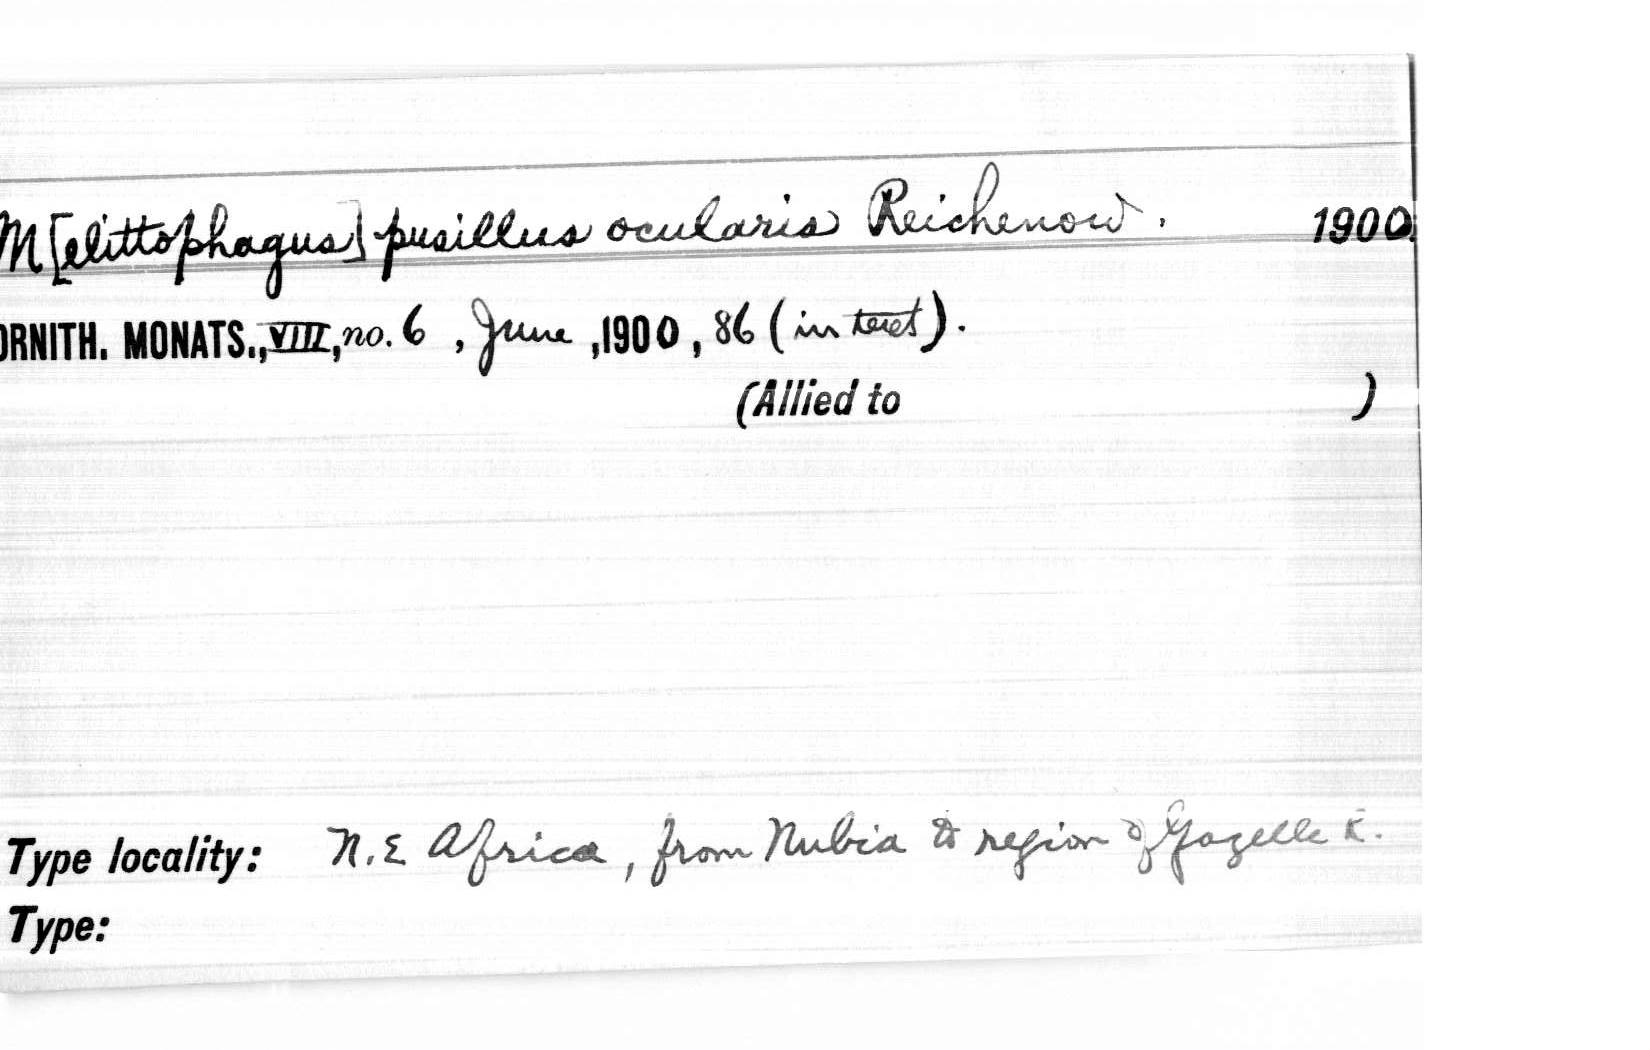 M[elittophagus] pusillus ocularis Reichenow. 1900.
ORNITH. MONATS., VIII, no. 6, June, 1900, 86 (in text).
(Allied to )
Type locality: N.E Africa, from Nubia to region of Gazelle R.
Type: